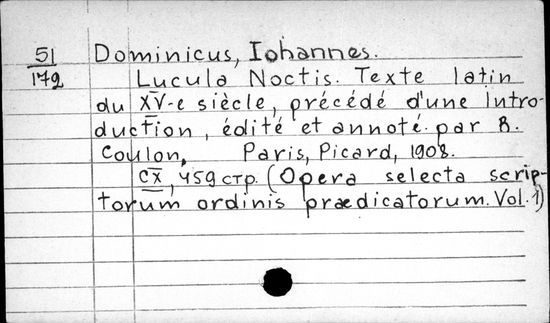 51 Dominicus, Iohannes.
172 Lucula Noctis. Texte latin
du XV-e siècle, précédé d'une intro-
duction, édité et annoté par R.
Coulon, Paris, Picard, 1908.
CX, 459 стр. (Opera selecta scrip-
torum ordinis prædicatorum. Vol. 1)